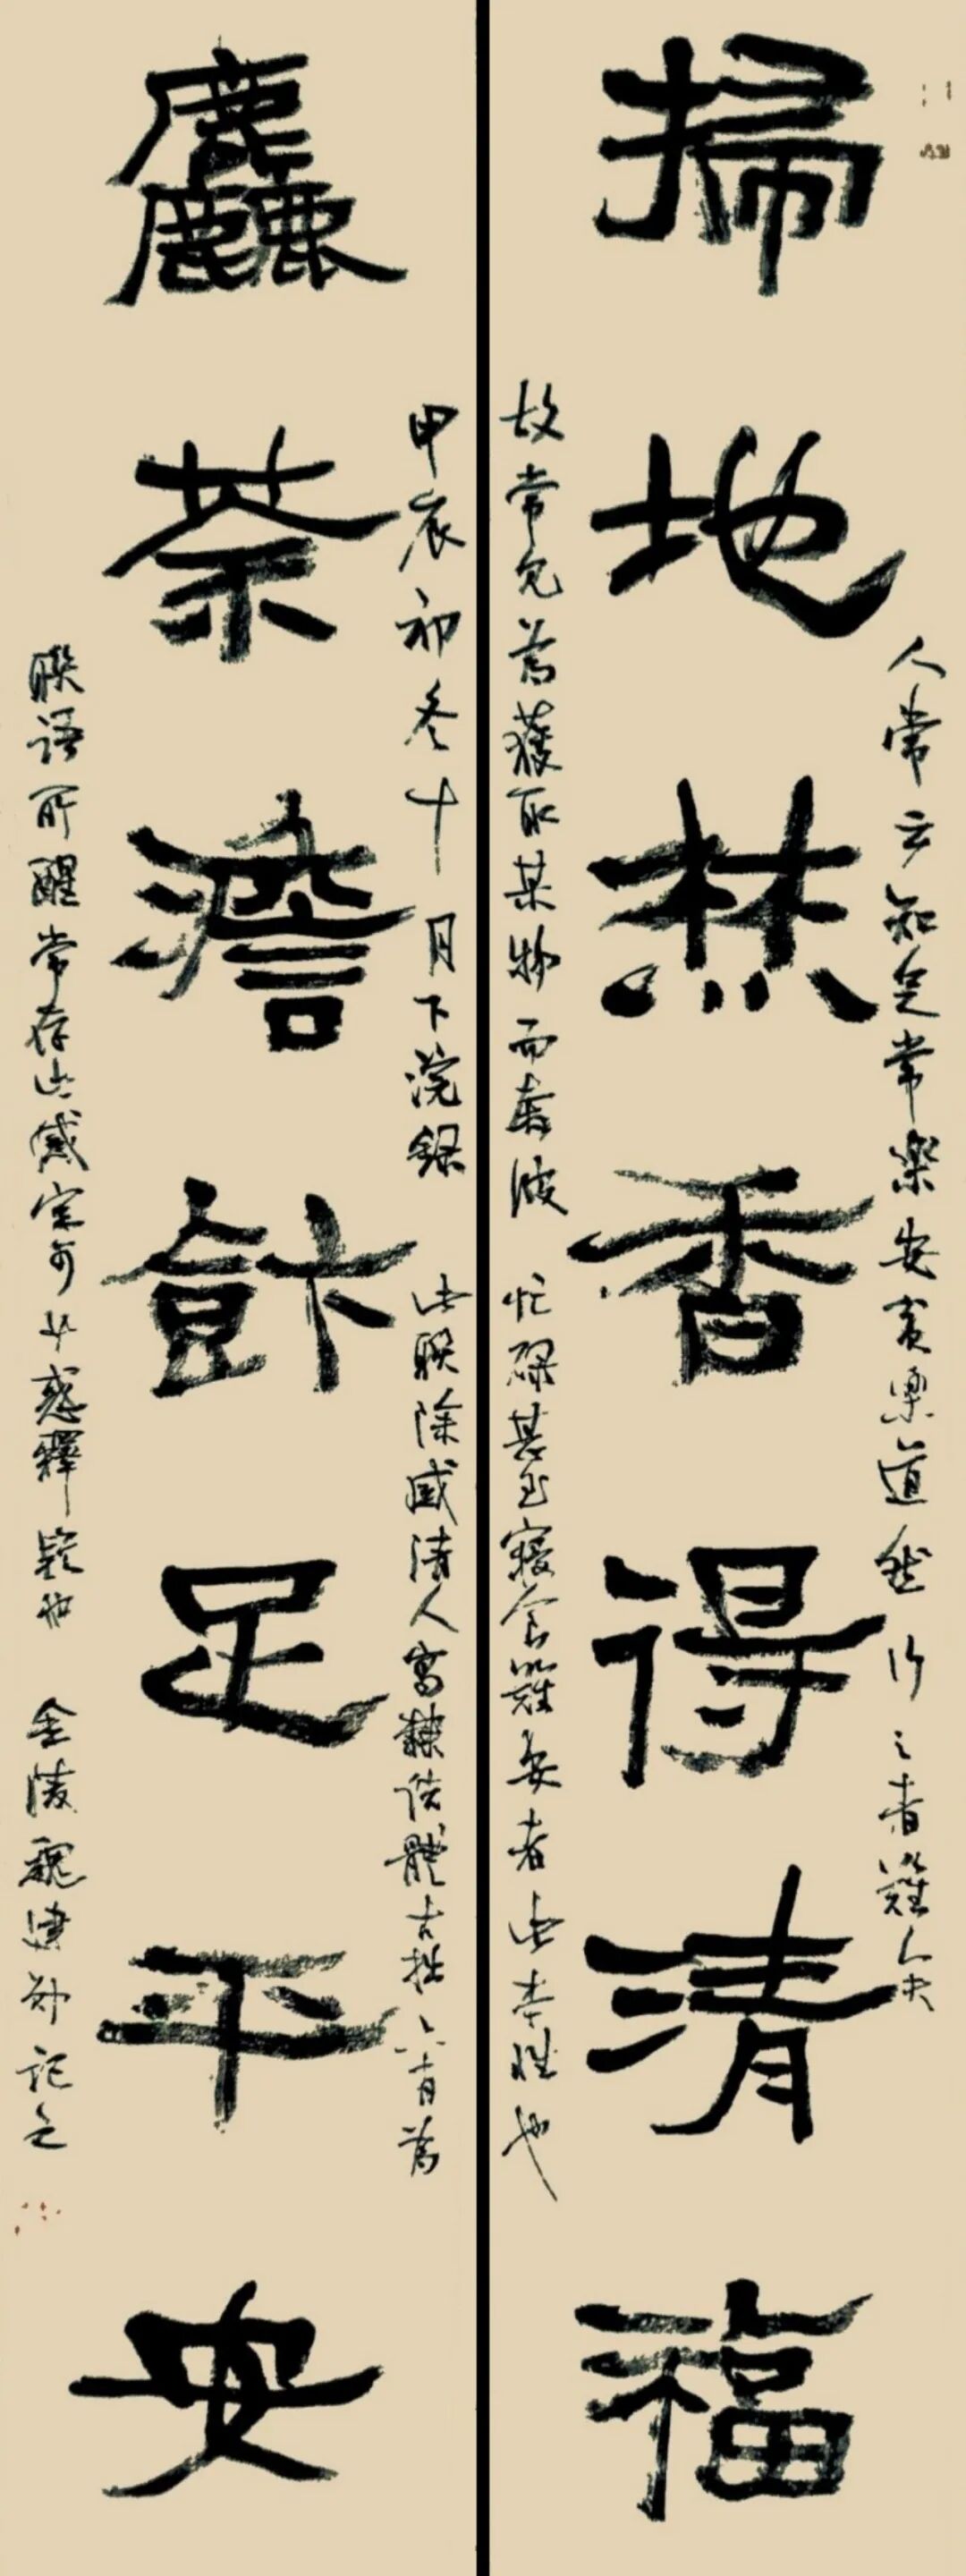 掃地焚香得清福
人常云知足常樂安貧樂道然行之者難人夫
故常見為獲取某物而奔波忙碌甚至寢食難安者由本性也
麤茶澹飰足平安
甲辰初冬十月下浣録
此聯除感清人寫隸佚體古拙亦有為
聯語所醒常存此感定可少惑釋疑也
金陵魏建外記之